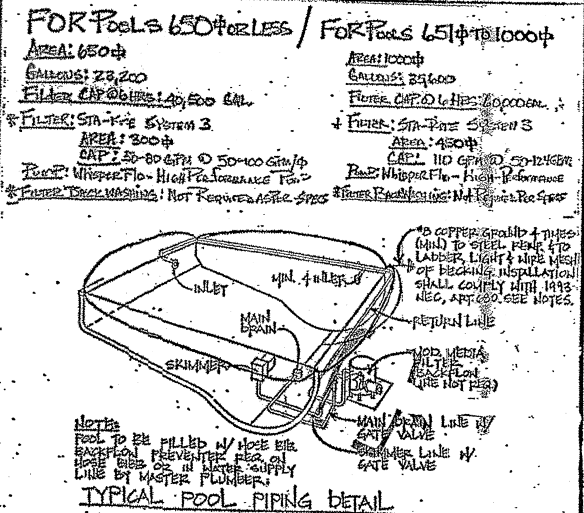 FOR POOLS 650⌀ OR LESS / FOR POOLS 651⌀ TO 1000⌀
AREA: 650⌀
GALLONS: 23,200
FILTER CAP @ 6 HRS: 40,500 GAL.
* FILTER: STA-RITE SYSTEM 3
AREA: 300⌀
CAP: 50-80 GPM @
PUMP: WHISPERFLO - HIGH PERFORMANCE
* FILTER BACKWASHING: NOT REQUIRED AS PER SPECS
AREA: 1000⌀
GALLONS: 35,600
FILTER CAP @ 6 HRS: 60,000 GAL.
FILTER: STA-RITE SYSTEM 3
AREA: 450⌀
CAP: 110 GPM @
PUMP: WHISPERFLO - HIGH PERFORMANCE
* FILTER BACKWASHING: NOT REQUIRED PER SPECS
#8 COPPER GROUND 4 TIMES
(MIN) TO STEEL REINF. & TO
LADDER, LIGHT & WIRE MESH
OF DECKING. INSTALLATION
SHALL COMPLY WITH 1993
NEC, ART 680. SEE NOTES.
INLET
MIN. 4 INLETS
RETURN LINE
MAIN
DRAIN
SKIMMER
MOD. MEDIA
FILTER
(BACKFLOW
LINE NOT REQ)
MAIN DRAIN LINE W/
GATE VALVE
SKIMMER LINE W/
GATE VALVE
NOTE:
POOL TO BE FILLED W/ HOSE BIB
BACKFLOW PREVENTER REQ. ON
HOSE BIBB OR IN WATER SUPPLY
LINE BY MASTER PLUMBER.
TYPICAL POOL PIPING DETAIL